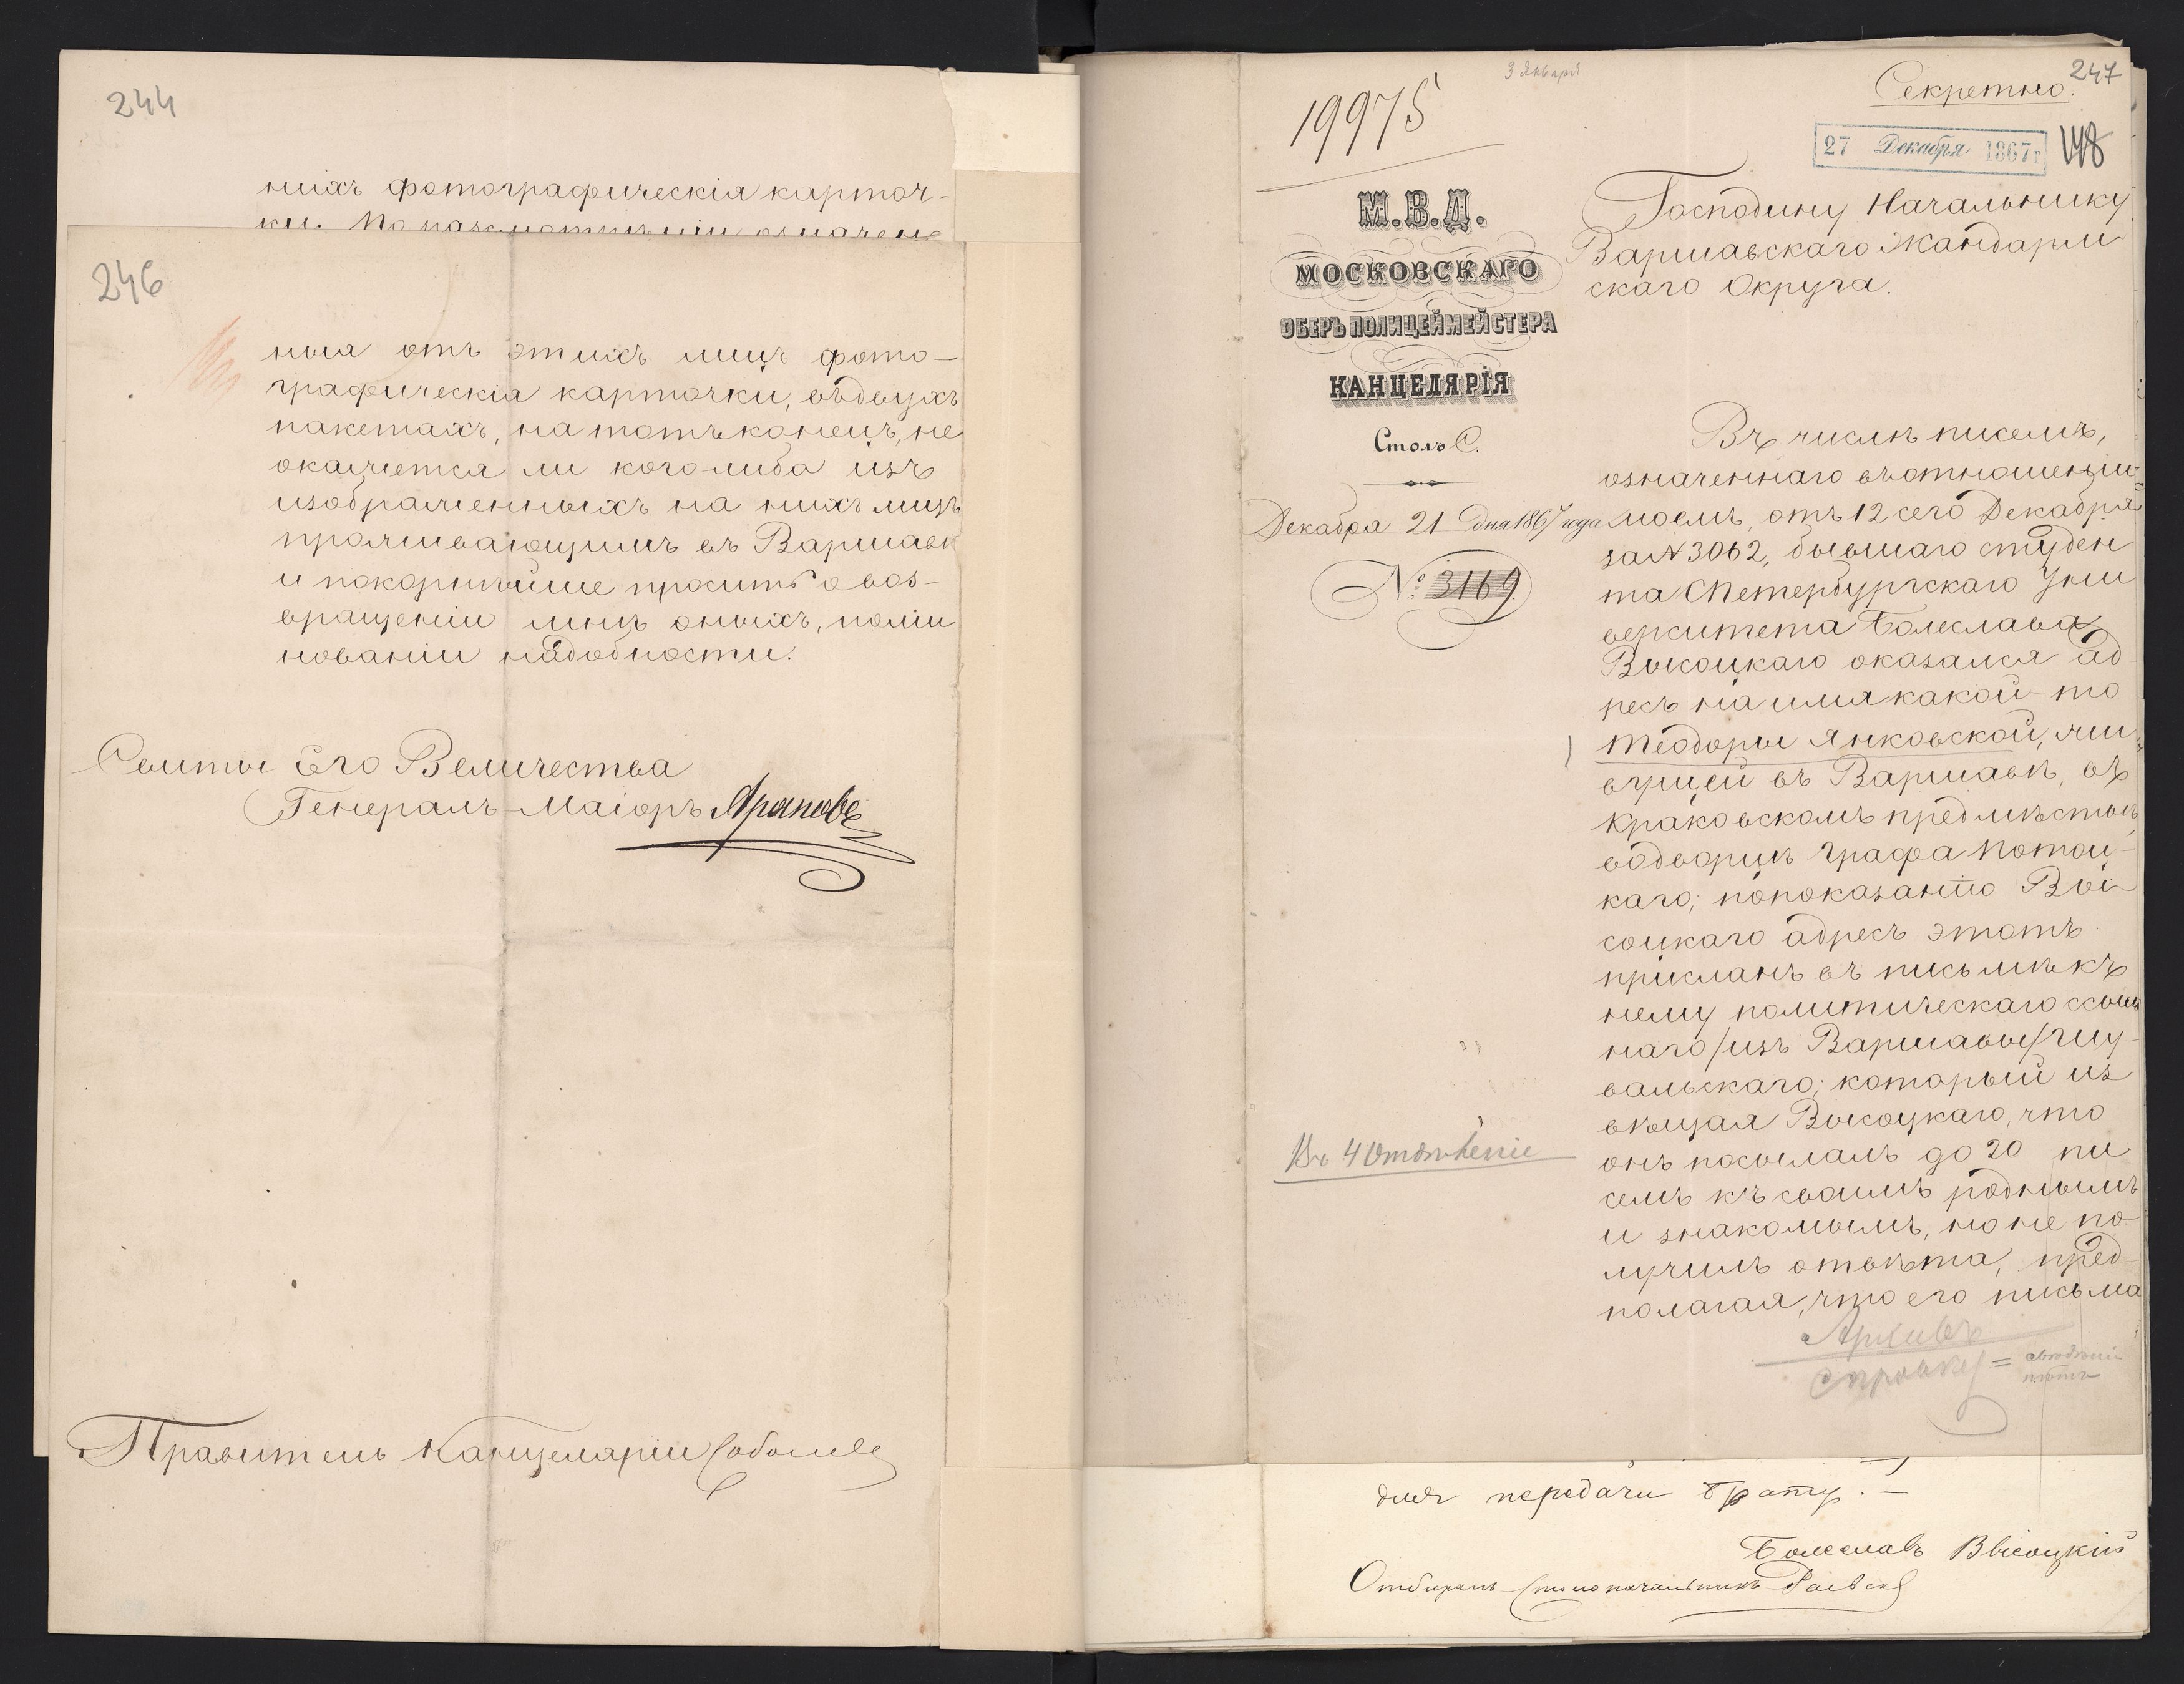 244
нихъ фотографическія карточ-
ки. По разсмотрѣніи означен
246
ныя отъ этихъ лицъ фото-
графическія карточки, въ двухъ
пакетахъ, на тотъ конецъ, не
окажется ли кого либо изъ
изображенныхъ на нихъ лицъ
проживающимъ въ Варшавѣ
и покорнѣйше проситъ о воз-
вращеніи мнѣ оныхъ, по ми
нованіи надобности.
Свиты Его Величества
Генералъ-Маіоръ Араповъ
Правитель Канцеляріи Соболев
3 Января
247
Секретно.
19975
27 Декабря 1867 г
148
М.В.Д.
МОСКОВСКАГО
ОБЕРЪ ПОЛИЦЕЙМЕЙСТЕРА
КАНЦЕЛЯРІЯ
Столъ С.
Декабря 21 дня 1867 года
№ 3169.
Господину Начальнику
Варшавскаго Жандарм
скаго Округа.
Въ числѣ писемъ,
означеннаго въ отношеніи
моемъ, отъ 12 сего Декабря
за № 3062, бывшаго студен
та СПетербургскаго Уни
верситета Болеслава
Высоцкаго оказался ад
ресъ на имя какой-то
Теодоры Янковской, жи
вущей въ Варшавѣ, въ
Краковскомъ предмѣстьѣ,
въ дворцѣ Графа Потоц-
каго; по показанію Вы-
соцкаго адресъ этотъ
присланъ въ письмѣ къ
нему политическаго ссыль
наго /изъ Варшавы/ Гну-
вальскаго; который из
вѣщая Высоцкаго, что
онъ посылалъ до 20 пи
семъ къ своимъ роднымъ
и знакомымъ, но не по-
лучилъ отвѣта, пред
полагая, что его письма
Въ 4 Отдѣленіе
Архивъ
справку = свѣдѣній
нѣтъ
для передачи брату. —
Болеславъ Высоцкій
Отбиралъ Столоначальникъ Раевск